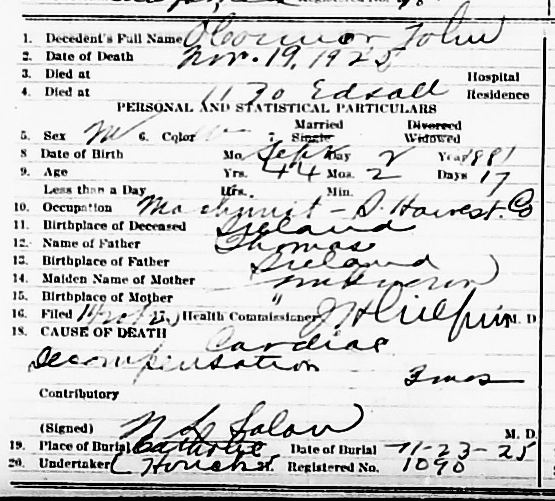 1. Decedent's Full Name O'Connor John
2. Date of Death Nov. 19, 1925
3. Died at Hospital
4. Died at 1130 Edsall Residence
PERSONAL AND STATISTICAL PARTICULARS
Married Divorced
5. Sex M 6. Color W 7. Single Widowed
8 Date of Birth Mo. Sept Day 2 Year 1881
9. Age Yrs. 44 Mos. 2 Days 17
Less than a Day Hrs. Min.
10. Occupation Machinist - I. Harvest. Co
11. Birthplace of Deceased Ireland
12. Name of Father Thomas
13. Birthplace of Father Ireland
14. Maiden Name of Mother
15. Birthplace of Mother "
16. Filed 17. Health Commissioner J H Gilpin M. D
18. CAUSE OF DEATH Cardiac
Decompensation 3 mos
Contributory
(Signed) M. D.
19. Place of Burial Catholic Date of Burial 11-23-25
20. Undertaker Registered No. 1090